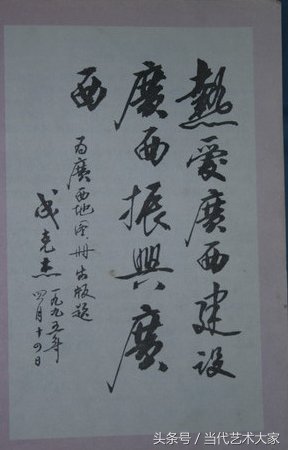 熱愛廣西建設
廣西振興廣
西
为廣西地图册出版题
成克杰
一九九五年
四月十四日
头条号／当代艺术大家